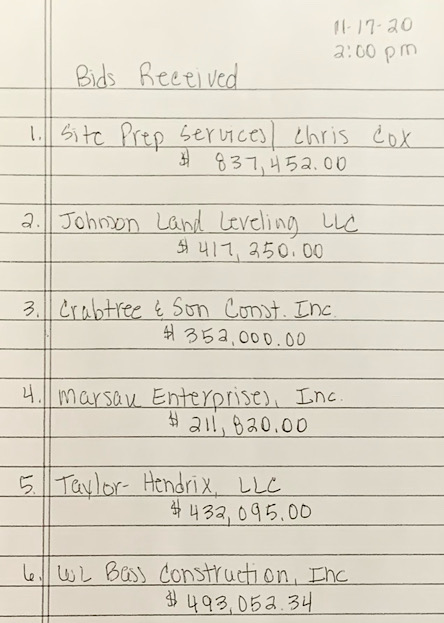 11-17-20
2:00 pm
Bids Received
1. Site Prep Services/ Chris Cox
$ 837,452.00
2. Johnson Land Leveling LLC
$ 417,250.00
3. Crabtree & Son Const. Inc.
$ 352,000.00
4. Marsau Enterprises, Inc.
$ 211,820.00
5. Taylor-Hendrix, LLC
$ 432,095.00
6. WL Bass Construction, Inc
$ 493,052.34